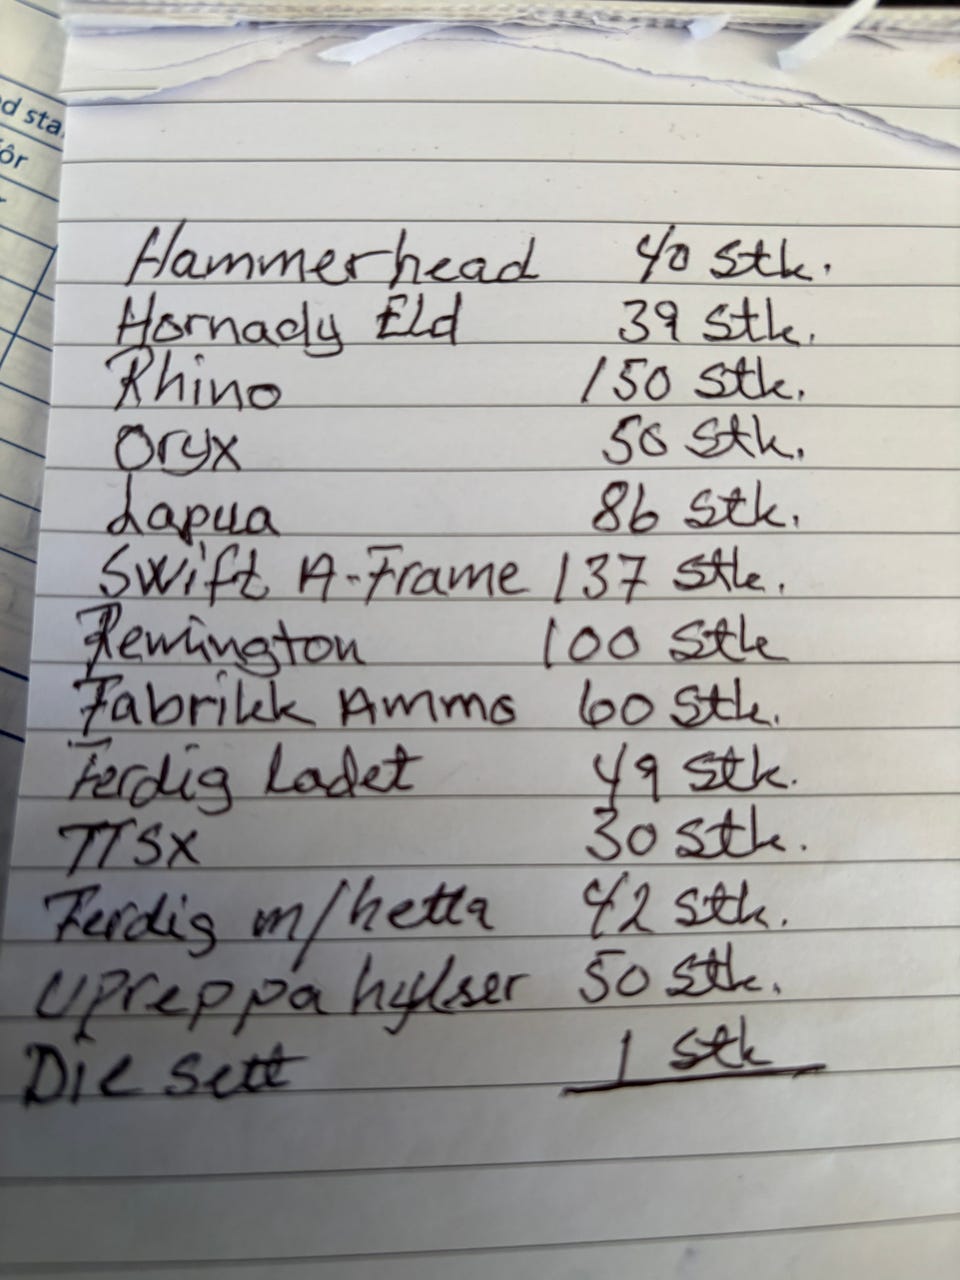 d sta
ôr
Hammerhead 40 stk.
Hornady Eld 39 stk.
Rhino 150 stk.
Oryx 50 stk.
Lapua 86 stk.
Swift A-Frame 137 stk.
Remington 100 stk
Fabrikk Ammo 60 stk.
Ferdig Ladet 49 stk.
TTSX 30 stk.
Ferdig m/hetta 42 stk.
Upreppa hylser 50 stk.
Die sett 1 stk